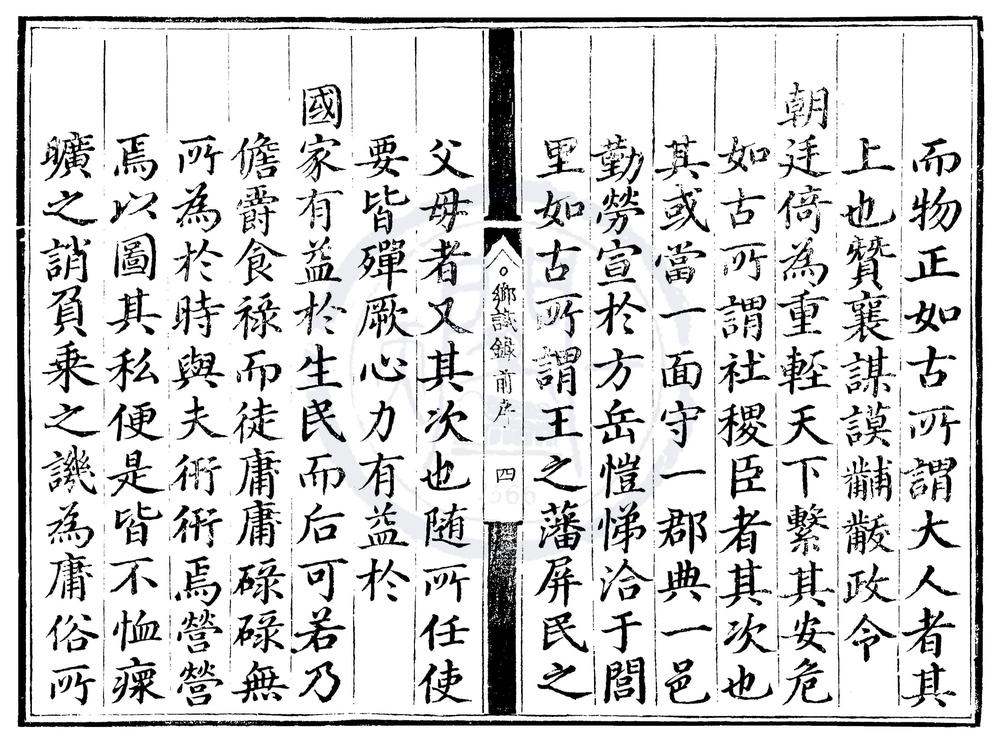 而物正如古所謂大人者其
上也贊襄謀謨黼黻政令
朝廷倚為重輕天下繫其安危
如古所謂社稷臣者其次也
其或當一面守一郡典一邑
勤勞宣於方岳愷悌洽于閭
里如古所謂王之藩屏民之
鄉試錄 前序 四
父母者又其次也随所任使
要皆殫厥心力有益於
國家有益於生民而后可若乃
儋爵食祿而徒庸庸碌碌無
所為於時與夫術術焉營營
焉以圖其私便是皆不恤瘝
曠之誚負乗之譏為庸俗所